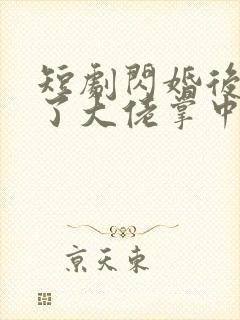 短劇閃婚後
了大佬掌中
京天東